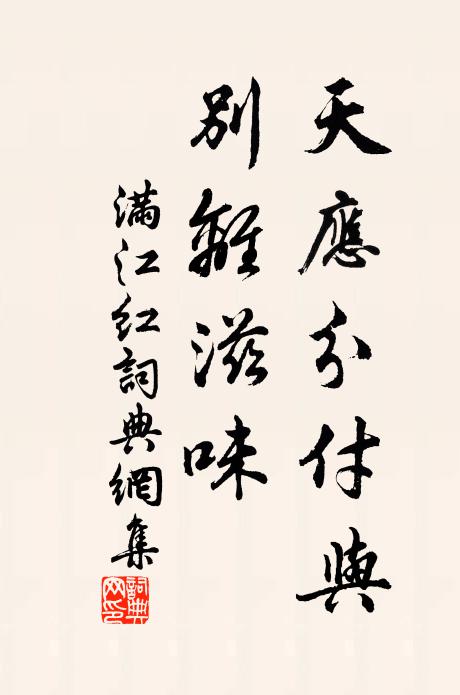 天應分付與
別離滋味
滿江紅詞典網集
詞典網印